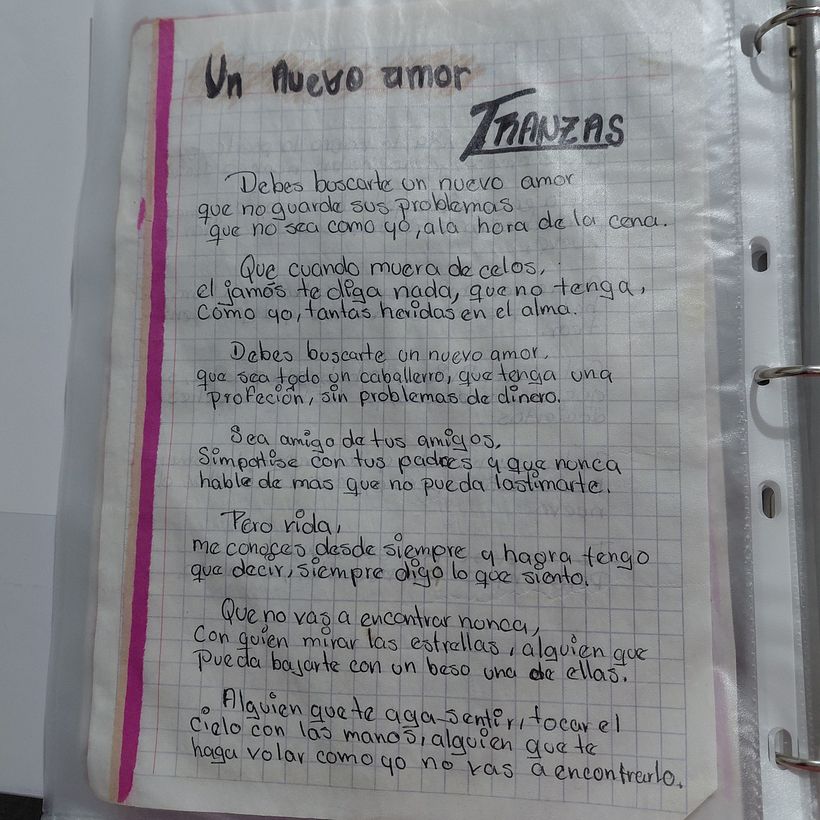 Un nuevo amor
TRANZAS
Debes buscarte un nuevo amor
que no guarde sus problemas
que no sea como yo, ala hora de la cena.
Que cuando muera de celos,
el jamás te diga nada, que no tenga,
como yo, tantas heridas en el alma.
Debes buscarte un nuevo amor,
que sea todo un caballerro, que tenga una
profeción, sin problemas de dinero.
Sea amigo de tus amigos,
Simpatise con tus padres y que nunca
hable de mas que no pueda lastimarte.
Pero vida,
me conoses desde siempre y hagra tengo
que decir, siempre digo lo que siento.
Que no vas a encontrar nunca,
Con quien mirar las estrellas, alguien que
pueda bajarte con un beso una de ellas.
Alguien que te aga sentir, tocar el
cielo con las manos, alguien que te
haga volar como yo no vas a encontrarlo.